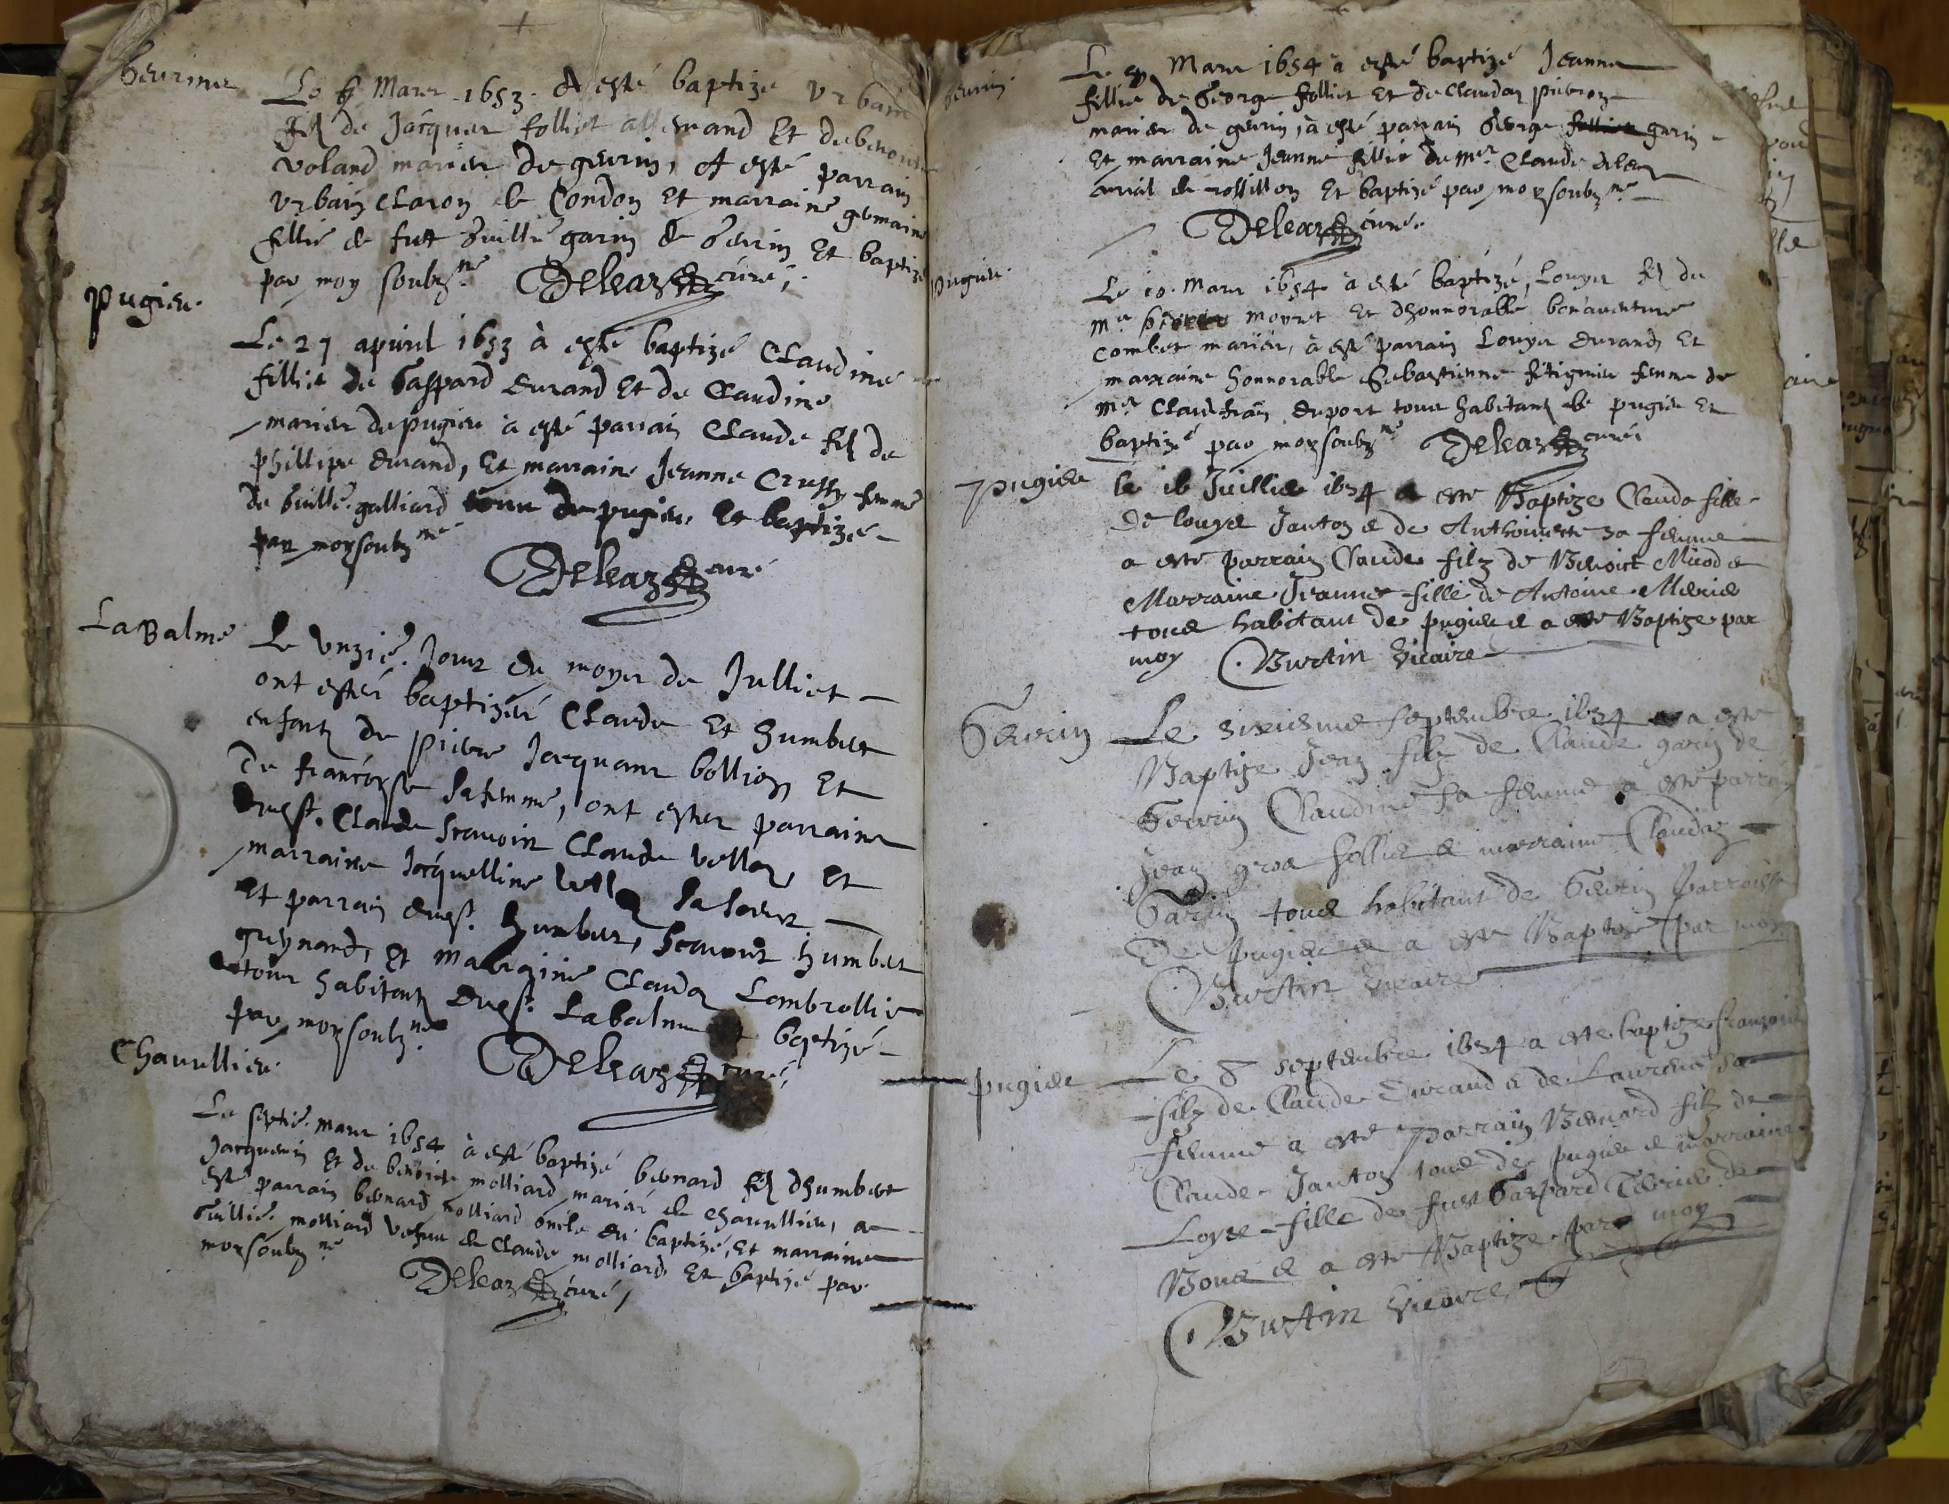 Gevrins
Le 6 Mars 1653 A esté baptizé Urbain
filz de Jacques folliet allemand Et de benoite
voland mariés de gevrin, A esté parrain
Urbain Claron de Condon Et marraine germaine
fillie de fut Guille garin de Gevrin Et baptizé
par moy soubz.né Deleaz curé
Pugieu.
Le 27 apvril 1653 à esté baptizé Claudine
fillie de Gaspard durand Et de Claudine
mariés de pugieu à esté parrain Claude filz de
phillipe durand, Et marraine Jeanne Crussy femme
de Guille. galliard tous de pugieu, Et baptizé
par moy soubz.né
Deleaz curé
La Balme
Le Unzie. Jour du moys de Julliet
ont estés baptizés Claude Et humbert
enfantz de pierre Jacquand bollion Et
de françoyse sa femme, ont estes parrains
dugst. Claude scavoir Claude vellaz Et
marraine Jacquelline sa soeur
Et parrain dugst. humbert, scavoir humbert
greynand, Et marraine Claudaz Lombrollie
tous habitantz dugst. Labalme baptizé
par moy soubz.né
Deleaz curé
Chavullieu.
Le septie. mars 1654 à esté baptizé bernard filz dhumbert
Jacquemin Et de benoite molliard mariés de chavullieu, a
esté parrain bernard molliard oncle du baptizé, Et marraine
Guillie. molliard vefve de Claude molliard Et baptizé par
moy soubz.né
Deleaz curé
Gevrin
Le Mars 1654 à esté baptizé Jeanne
fillie de George folliet Et de Claudaz pierroz
mariés de gevrin, à esté parrain George garin
Et marraine Jeanne fillie de Mer Claude deleaz
de rossillon Et baptizé par moy soubz.né
Deleaz curé.
Pugieu.
Le 10 Mars 1654 à esté baptizé, Louys filz de
Me. moyret Et dhonnorable bonaventure
Combet mariés, à esté parrain Louys durand, Et
marraine honnorable Sebastienne femme de
Mer Claude fran duport tous habitantz de pugieu Et
baptizé par moy soubz.né Deleaz curé
Pugieu
le 16 Juillie 1654 a esté Baptize Claude fille
de louys Janton e de Anthoinette sa femme
a esté parrain Claude filz de Benoict Miod e
Marraine Jeanne fille de Antoine Meric
tous habitant de pugieu e a esté Baptize par
moy Burtin Vicaire
Gevrin
Le sixiesme septembre 1654 a esté
Baptize Jean filz de Claude garin de
Gevrin Claudine sa femme a esté parrain
Jean gros follie e marraine Claudaz
Garin tous habitant de Gevrin parroisse
De Pugieu e a esté Baptize par moy
Burtin Vicaire
pugieu
Le 8 septembre 1654 a este baptize françois
filz de Claude Durand e de Laurence sa
femme a esté Parrain Bernard filz de
Claude Janton tous de pugieu e marraine
Loyse fille de fust Gaspard de
Bons e a esté Baptize par moy
Burtin Vicaire